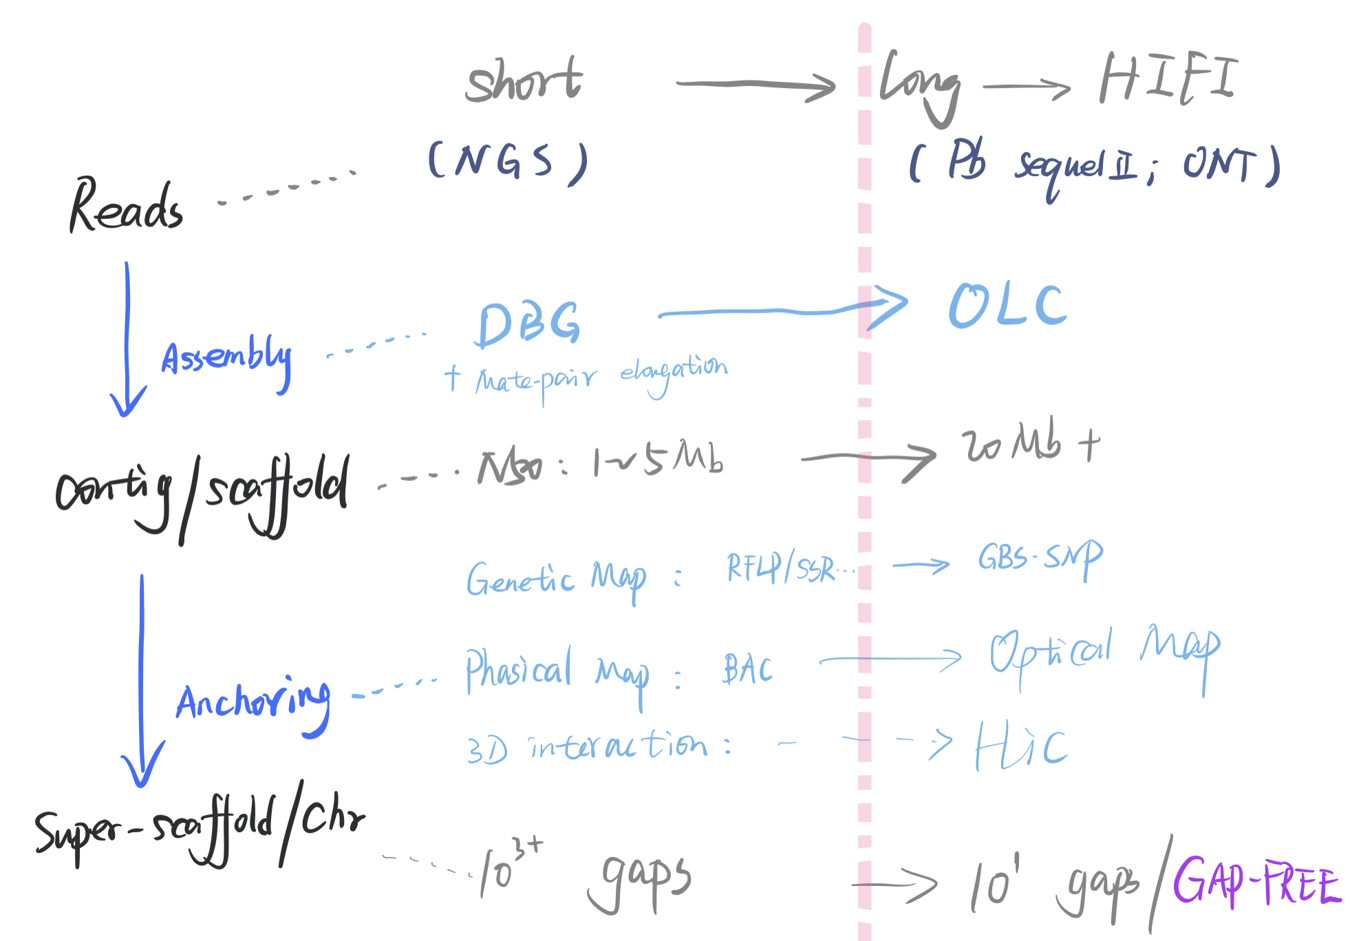 short → long → HIFI
(NGS) (Pb sequel II; ONT)
Reads
DBG → OLC
Assembly
+ Mate-pair elongation
Contig/scaffold N50: 1~5 Mb → 20 Mb +
Genetic Map: RFLP/SSR... → GBS-SNP
Phasical Map: BAC → Optical Map
Anchoring
3D interaction: - - - -> HiC
Super-scaffold/Chr
10³⁺ gaps → 10¹ gaps/GAP-FREE